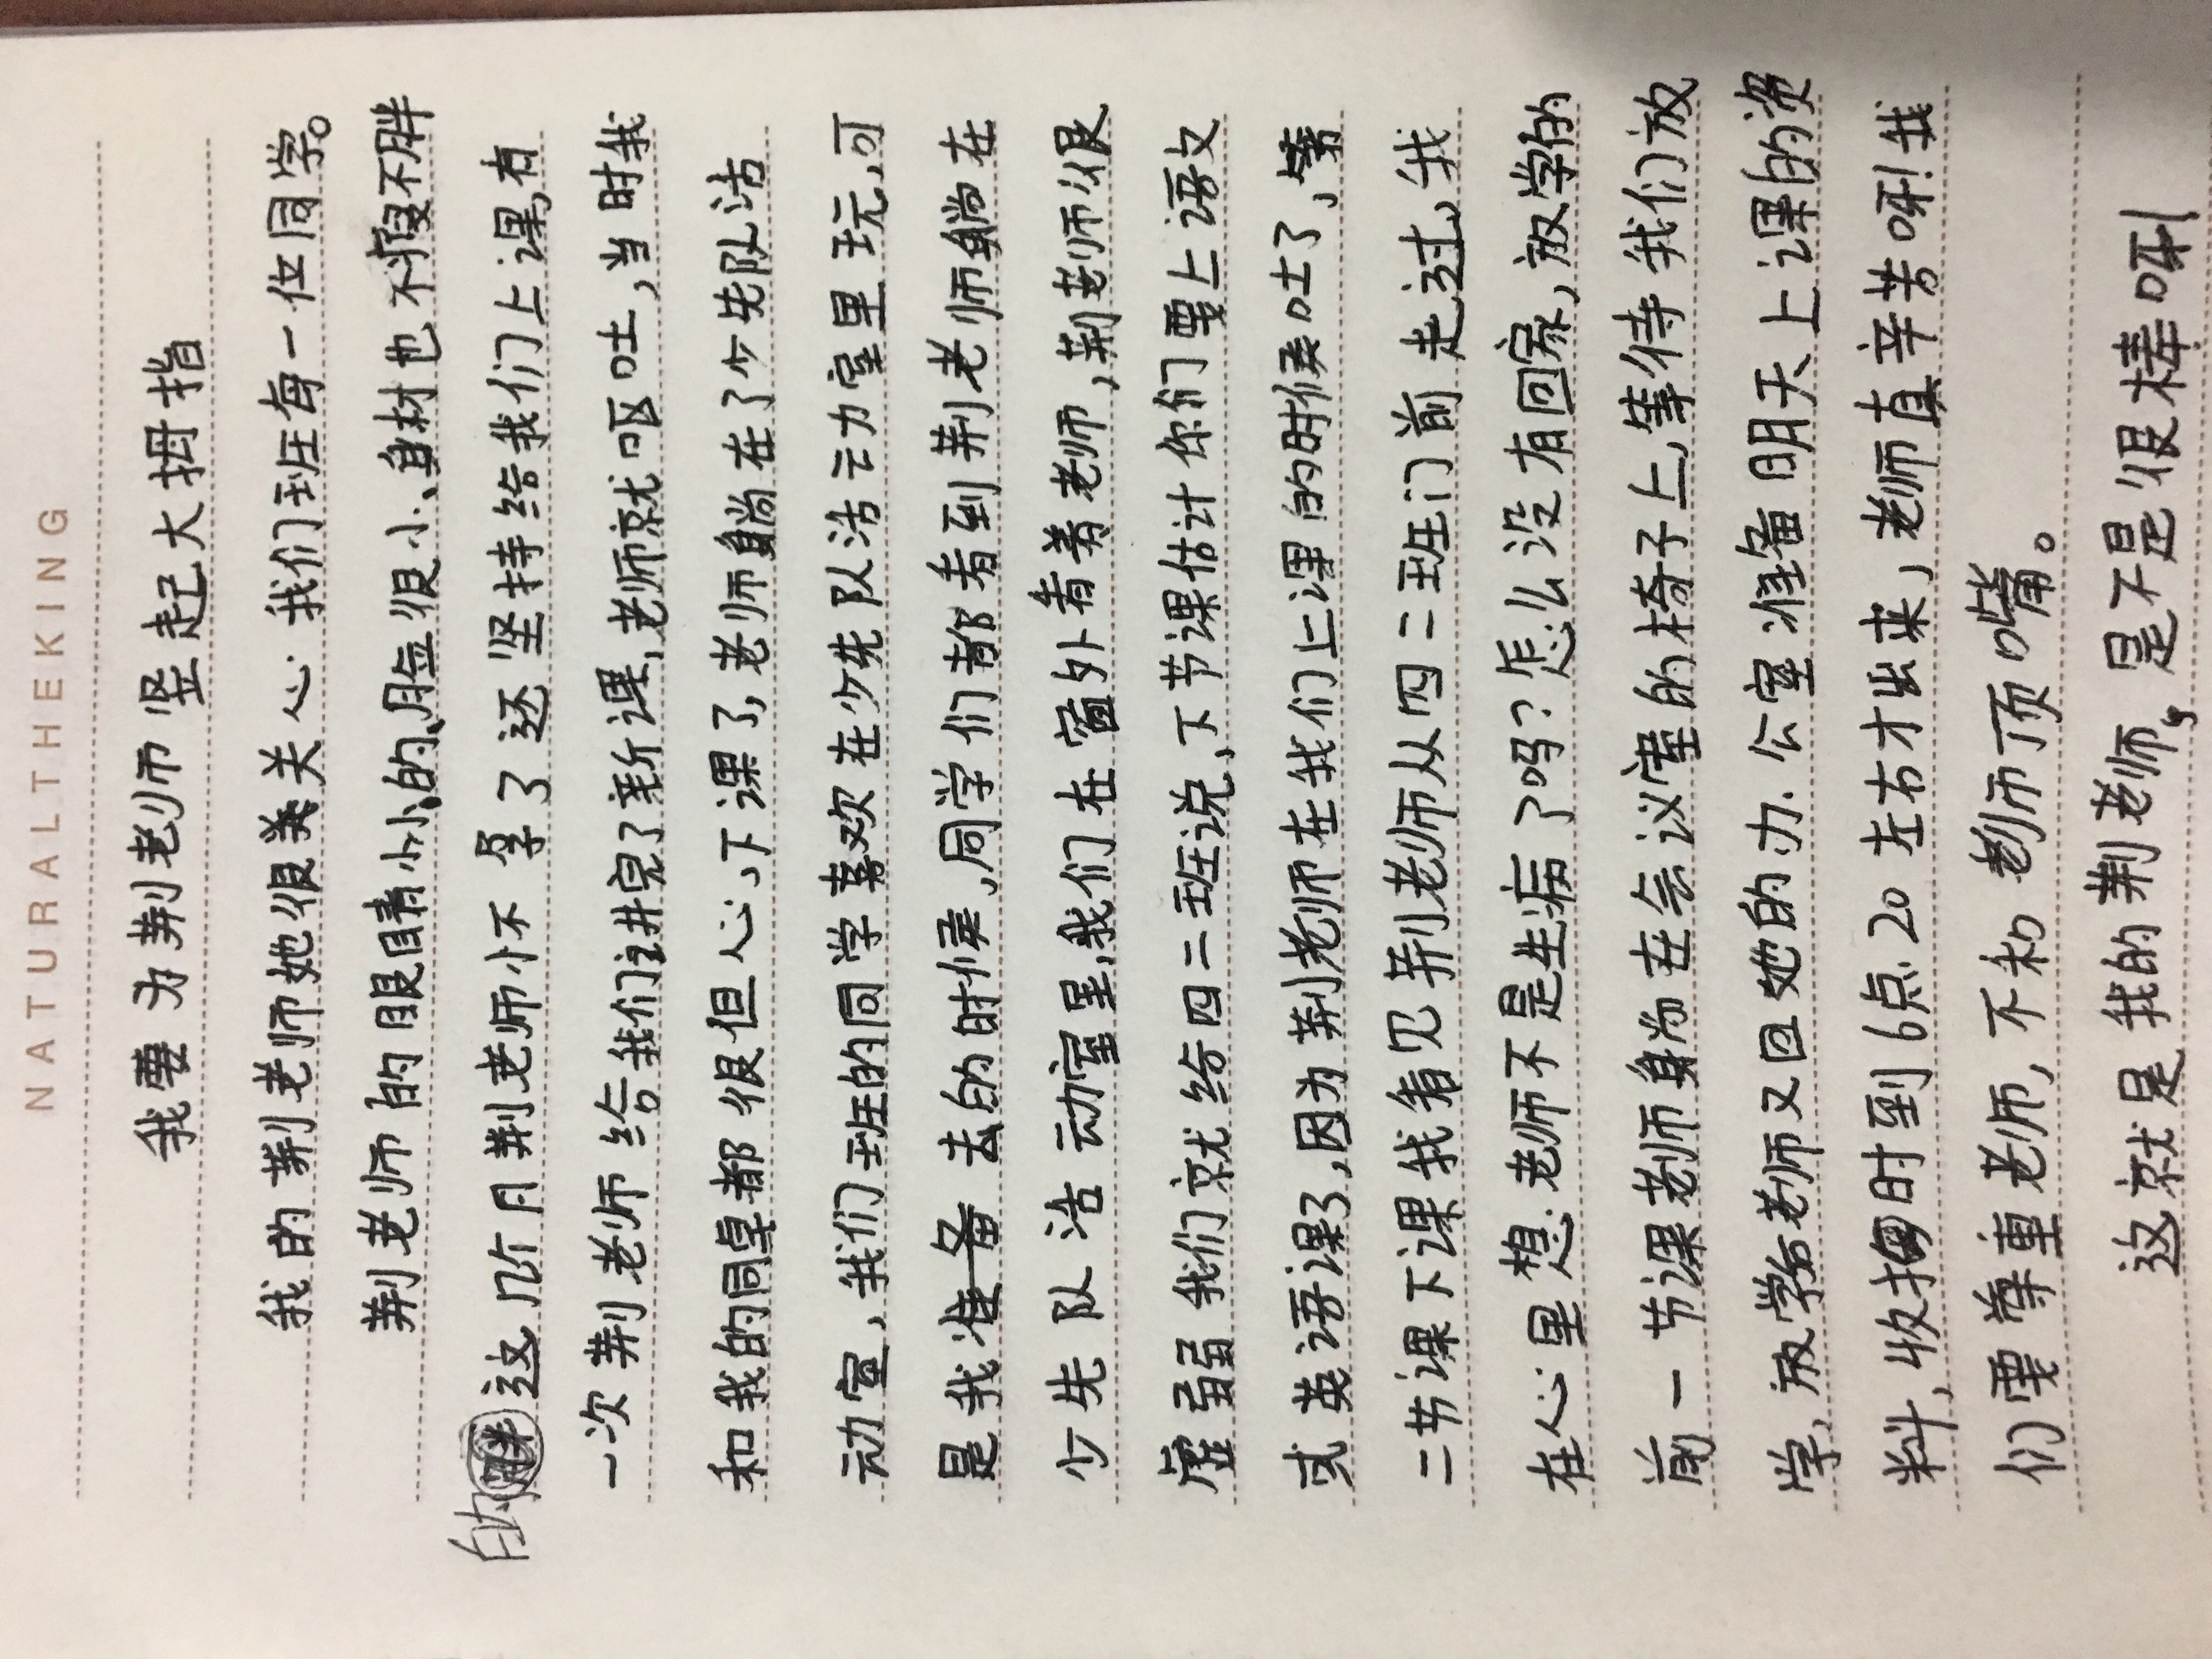 NATURALTHEKING
我要为荆老师竖起大拇指
我的荆老师她很关心我们班每一位同学。
荆老师的眼睛小小的、脸很小、身材也不瘦不胖
的这几个月荆老师小不孕了还坚持给我们上课,有
一次荆老师给我们讲完了新课,老师就呕吐,当时我
和我的同桌都很但心,下课了,老师躺在了少先队活
动室,我们班的同学喜欢在少先队活动室里玩,可
是我准备去的时候,同学们都看到荆老师躺在
少先队活动室里,我们在窗外看着老师,荆老师很
虚弱我们就给四二班说,下节课估计你们要上语文
或英语课了,因为荆老师在我们上课的时候吐了,第
二节课下课我看见荆老师从四二班门前走过,我
在心里想:老师不是生病了吗?怎么没有回家,放学的
前一节课老师躺在会议室的椅子上,等待我们放
学,放学老师又回她的办公室准备明天上课的资
料,收拾时到6点20左右才出来,老师真辛苦呀!我
们要尊重老师,不和老师顶嘴。
这就是我的荆老师,是不是很棒呀!